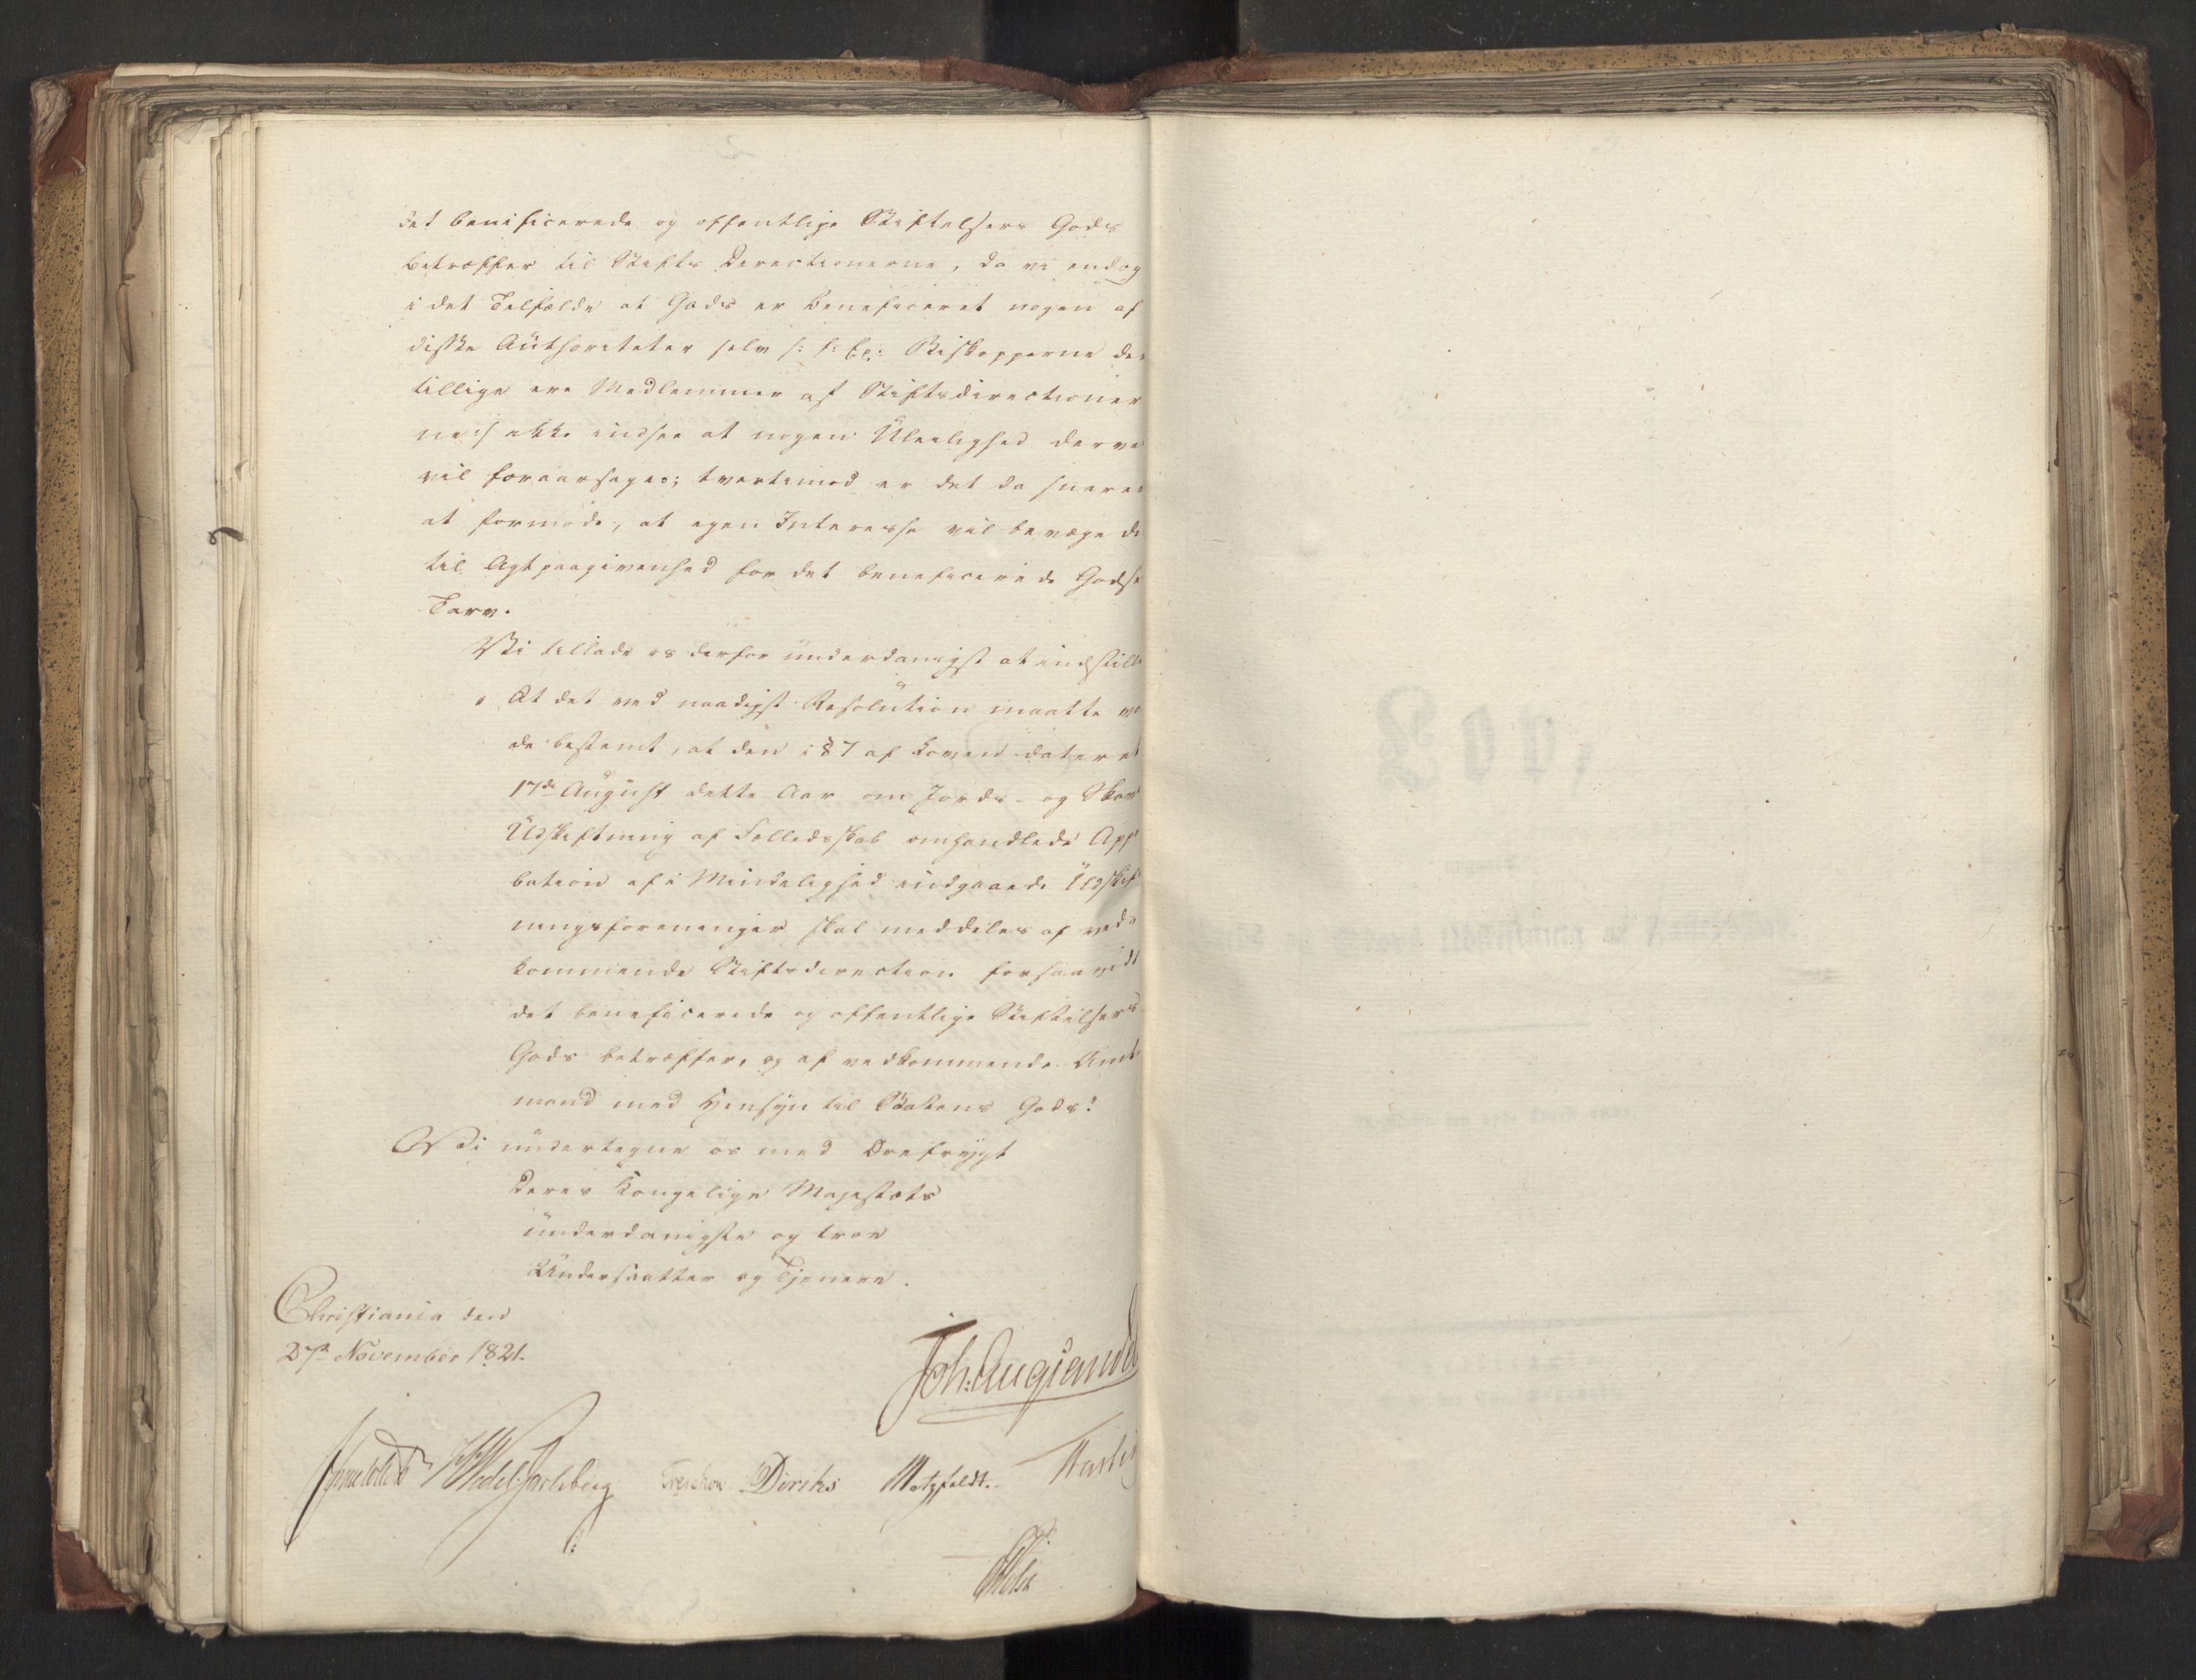 det benificerede og offentlige Stiftelsers Gods
betræffer til Stifts Directionerne, da vi endog
i det Tilfælde at Gods er beneficeret nogen af
disse Authoriteter selv /: f: Ex: Biskopperne der
tillige ere Medlemmer af Stiftsdirectioner
ne :/ ikke indsee at nogen Uleilighed derve
vil foraarsages; tvertimod er det da snarer
at formode, at egen Interesse vil bevæge de
til Agtpaagivenhed for det beneficerede Godse
Tarv.
Vi tillade os derfor underdanigst at indstille
At det ved naadigst Resolution maatte vo
de bestemt, at den i § 7 af Loven dateret
17de August dette Aar om Jords- og Skov
Udskiftning af Fælledsskab omhandlede App
bation af i Mindelighed indgaaede Udskif
ningsforeninger skal meddeles af ved
kommende Stiftsdirection forsaavidt
det beneficerede og offentlige Stiftelsers
Gods betræffer, og af vedkommende Amt
mand med Hensyn til Statens Gods?
Vi undertegne os med Ærefrygt
Deres Kongelige Majestæts
underdanigste og troe
Undersaatter og Tjenere.
Christiania den
27de November 1821.
Joh: Aug: Sand
Sommerhielm HWedel Jarlsberg Treschow Diriks Motzfeldt.
Holst
Lov,